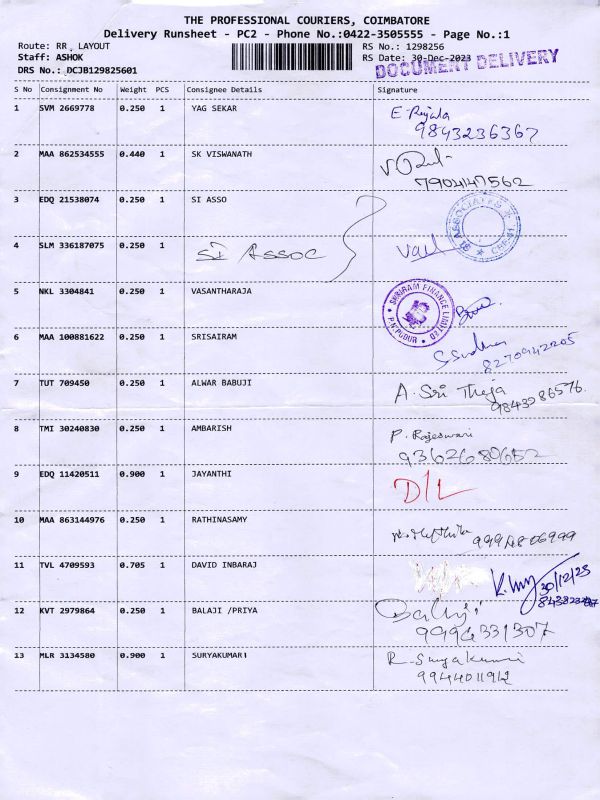 THE PROFESSIONAL COURIERS, COIMBATORE
Delivery Runsheet - PC2 - Phone No.:0422-3505555 - Page No.:1
Route: RR. LAYOUT RS No.: 1298256
Staff: ASHOK RS Date: 30-Dec-2023
DOCUMENT DELIVERY
DRS No.: DCJB129825601
S No Consignment No Weight PCS Consignee Details Signature
1 SVM 2669778 0.250 1 YAG SEKAR
9843236367
2 MAA 862534555 0.440 1 SK VISWANATH
7904147562
3 EDQ 21538074 0.250 1 SI ASSO
SI ASSOCIATES
CBE-41
4 SLM 336187075 0.250 1 SI ASSOC
5 NKL 3304841 0.250 1 VASANTHARAJA
SHRIRAM FINANCE LIMITED
P.N.PUDUR
6 MAA 100881622 0.250 1 SRISAIRAM
8270942205
7 TUT 709450 0.250 1 ALWAR BABUJI A. Sri Theja
8 TMI 30240830 0.250 1 AMBARISH P. Rajeswari
9362680652
9 EDQ 11420511 0.900 1 JAYANTHI D/L
10 MAA 863144976 0.250 1 RATHINASAMY
11 TVL 4709593 0.705 1 DAVID INBARAJ
30/12/23
12 KVT 2979864 0.250 1 BALAJI /PRIYA Balaji
9994331307
13 MLR 3134580 0.900 1 SURYAKUMARI R. Suryakumari
9944011912